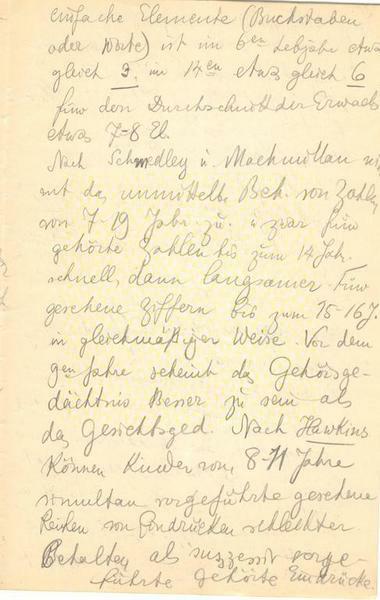 einfache Elemente (Buchstaben
oder Worte) ist im 6en Lebjahre etwa
gleich 3, im 14en etwa gleich 6
für den Durchschnitt der Erwachs
etwas 7-8 El.
Nach Schmedley u. Machmillan
mt das unmittelb. Beh. von Zahlen
von 7-19 Jahr. zu. u zwar für
gehörte Zahlen bis zum 14. Jah.
schnell, dann langsamer. Für
gesehene Ziffern bis zum 15-16 J.
in gleichmäßiger Weise. Vor dem
9en Jahre scheint das Gehörsge-
dächtnis Besser zu sein als
das Gesichtsged. Nach Hawkins
können Kinder vom 8-11 Jahre
simultan vorgeführte gesehene
Reihen von Eindrücken schlechter
Behalten als suzzessiv vorge-
führte gehörte Eindrücke.